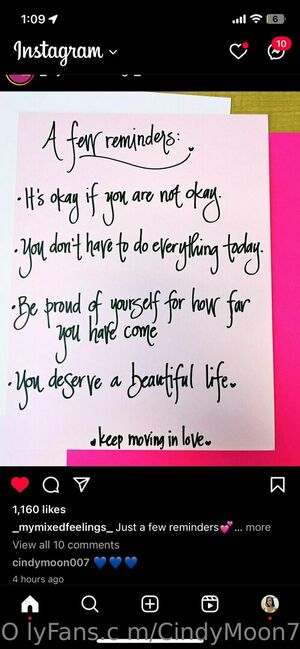 1:09
6
Instagram
10
A few reminders:
• It's okay if you are not okay.
• You don't have to do everything today.
• Be proud of yourself for how far
you have come
• You deserve a beautiful life.
keep moving in love
1,160 likes
_mymixedfeelings_ Just a few reminders💕... more
View all 10 comments
cindymoon007 💙💙💙
4 hours ago
O lyFans.c m/CindyMoon7